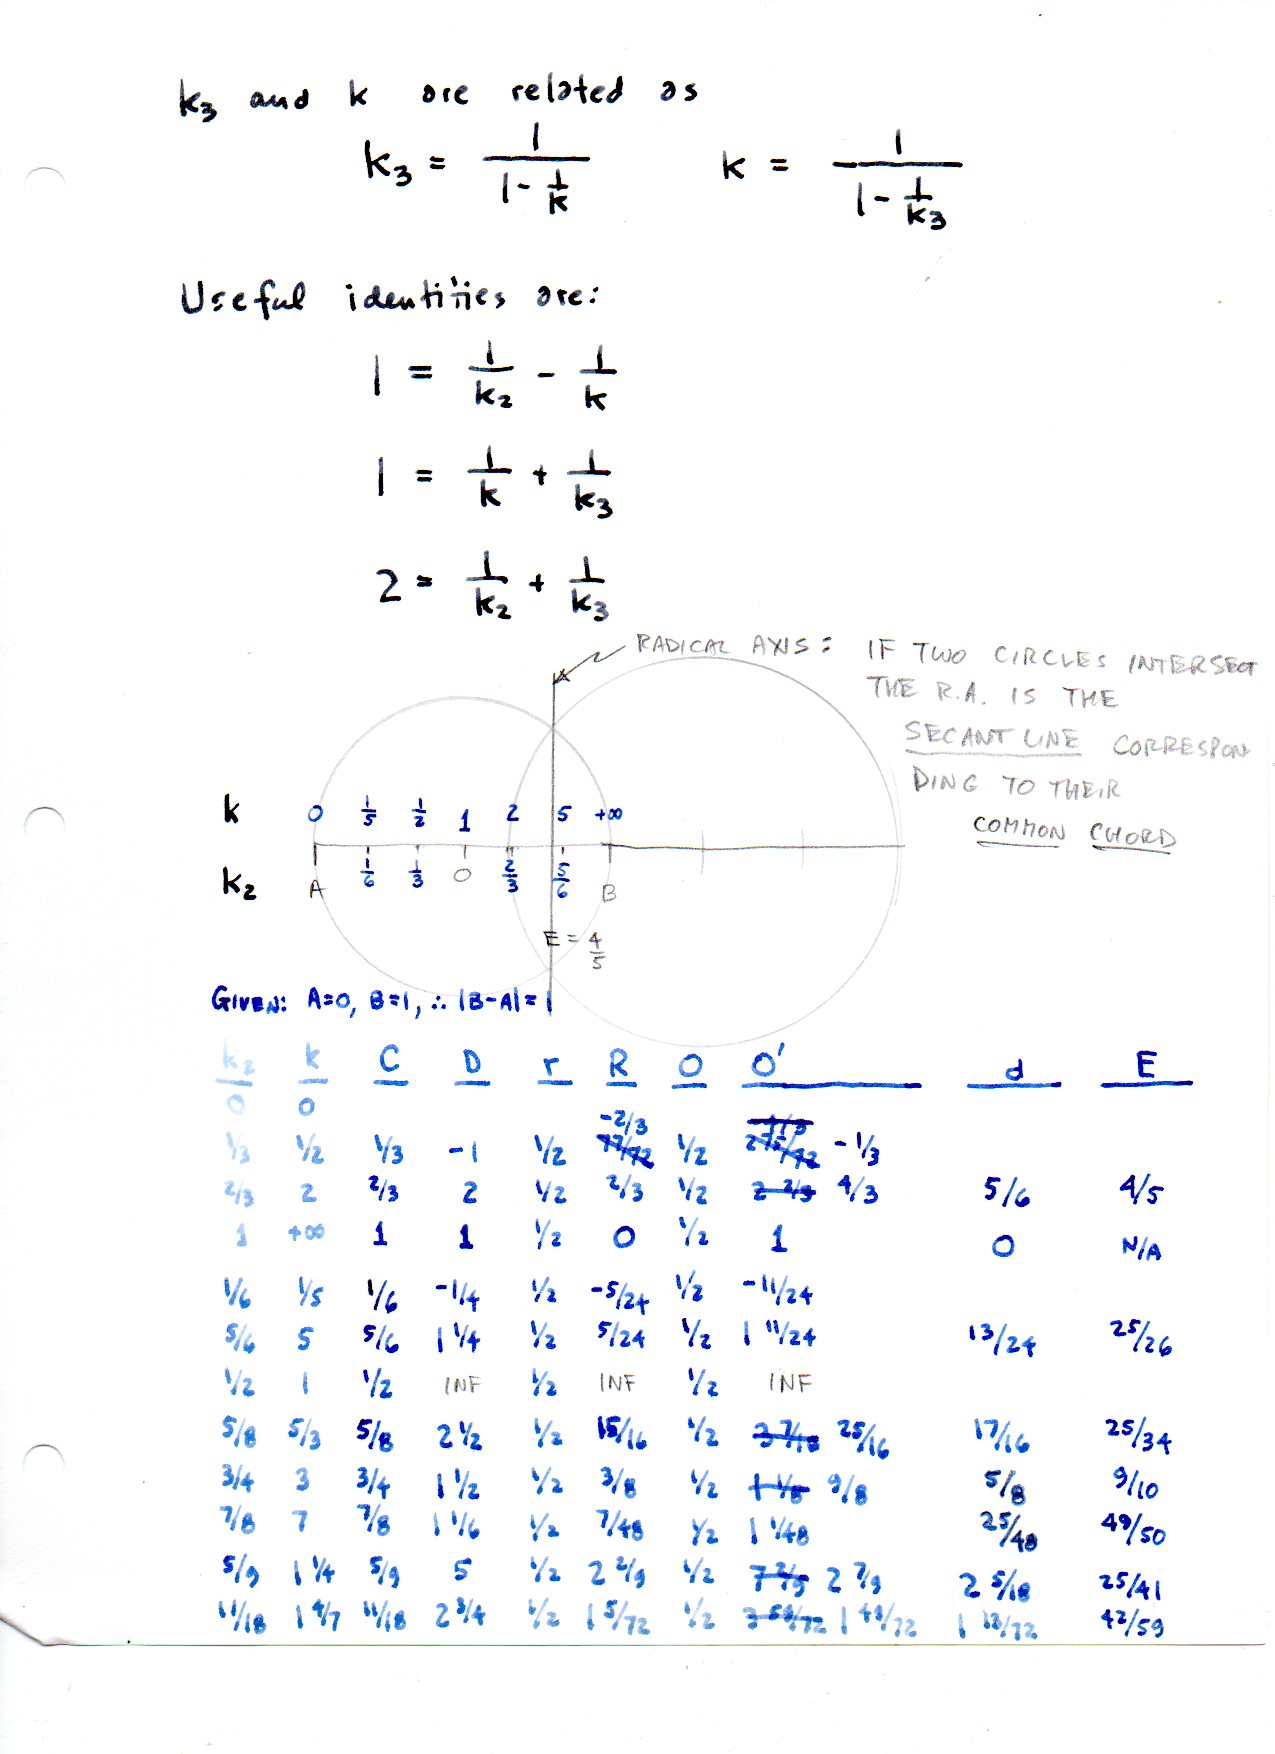 k₃ and k are related as
k₃ = 1/(1 - 1/k)    k = 1/(1 - 1/k₃)
Useful identities are:
1 = 1/k₂ - 1/k
1 = 1/k + 1/k₃
2 = 1/k₂ + 1/k₃
RADICAL AXIS: IF TWO CIRCLES INTERSECT
THE R.A. IS THE
SECANT LINE CORRESPON
DING TO THEIR
COMMON CHORD
k 0 1/5 1/2 1 2 5 +∞
k₂ A 1/6 1/3 0 2/3 5/6 B
E = 4/5
GIVEN: A=0, B=1, ∴ |B-A|=1
k₂ k C D r R O O' d E
0 0
-2/3
1/3 1/2 1/3 -1 1/2 1/2 -1/3
2/3 2 2/3 2 1/2 2/3 1/2 2 2/3 4/3 5/6 4/5
1 +∞ 1 1 1/2 0 1/2 1 0 N/A
1/6 1/5 1/6 -1/4 1/2 -5/24 1/2 -11/24
5/6 5 5/6 1 1/4 1/2 5/24 1/2 1 11/24 13/24 25/26
1/2 1 1/2 INF 1/2 INF 1/2 INF
5/8 5/3 5/8 2 1/2 1/2 15/16 1/2 25/16 17/16 25/34
3/4 3 3/4 1 1/2 1/2 3/8 1/2 1 1/8 9/8 5/8 9/10
7/8 7 7/8 1 1/6 1/2 7/48 1/2 1 1/48 25/48 49/50
5/9 1 1/4 5/9 5 1/2 2 2/9 1/2 2 7/9 2 5/18 25/41
11/18 1 4/7 11/18 2 3/4 1/2 1 5/72 1/2 1 13/72 42/59